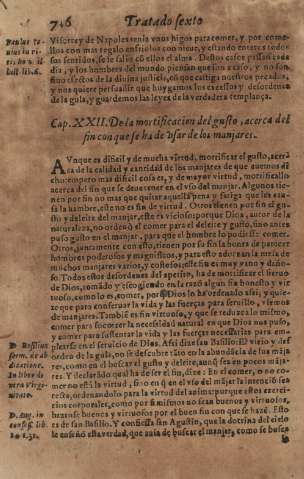 746 Tratado sexto
Visorrey de Napoles tenia unos higos para comer, y por comer
los con mas regalo
sos sentidos, se le salio con ellos el alma. Destos casos passan cada
dia, y los hombres del mundo piensan que son acaso, y no son
sino efectos de la divina justicia, con que castiga nuestros pecados,
y nos quiere persuadir que huygamos los excessos y desordenes
de la gula, y guardemos las leyes de la verdadera templança.
Cap. XXII. De la mortificacion del gusto, acerca del
fin con que se ha de usar de los manjares.
AUnque es dificil y de mucha virtud, mortificar el gusto, acer
ca de la calidad y cantidad de los manjares de que avemos di
cho; empero mas dificil cosa es, y de mayor virtud, mortificallo
acerca del fin que se deve tener en el uso del manjar. Algunos tie
nen por fin no mas que quitar aquella pena y fatiga que les cau
sa la hambre, este no es fin de virtud. Otros tienen por fin el gu
sto y deleite del manjar, este es vicioso: porque Dios, autor de la
naturaleza, no ordenò el comer para el deleite y gusto, sino antes
puso gusto en el manjar, para que el hombre lo pudiesse comer.
Otros, juntamente con esto, tienen por su fin la honra de parecer
hombres poderosos y magnificos, y para esto adereçan la mesa de
muchos manjares varios, y costosos; este fin es muy vano y daño
so. Todos estos desordenes del apetito, ha de mortificar el siervo
de Dios, tomando y escogiendo en la razon algun fin honesto y vir
tuoso, como lo es, comer, porque Dios lo ha ordenado assi, y quie
re que para conservar la vida y las fuerças para servirlo, usemos
de manjares. Tambien es fin virtuoso, y que se reduze a lo mismo,
comer para socorrer la necessidad natural en que Dios nos puso,
y comer para sustentar la vida y las fuerças necessarias para em-
plearse en el servicio de Dios. Assi dize san Basilio: El vicio y des
orden de la gula, no se descubre tãto en la abundãcia de los mãja
res, como en el buscar el gusto y deleite, aunque sea en pocos mãja-
res. Y declarãdo qual ha de ser el fin, dize: En el comer, o no co-
mer no està la virtud, sino en que en el uso del mãjar la intenciõ sea
recta, ordenandolo para la virtud del anima: porque estos exerci-
cios corporales, como por si mismos no sean buenos y virtuosos,
hazense buenos y virtuosos por el buen fin con que se hazẽ. Esto
es de san Basilio. Y confiessa san Agustin, que la dotrina del cielo
le enseñò esta verdad, que avia de buscar el manjar, como se busca
D. Basilius
serm. de ab
dicatione.
D. Aug. in
confess. lib.
10 c. 31.